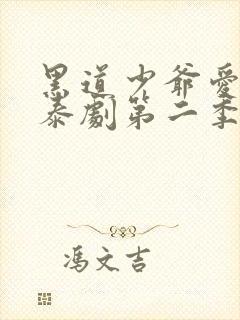 黑道少爺愛
泰劇第二季
馮文吉